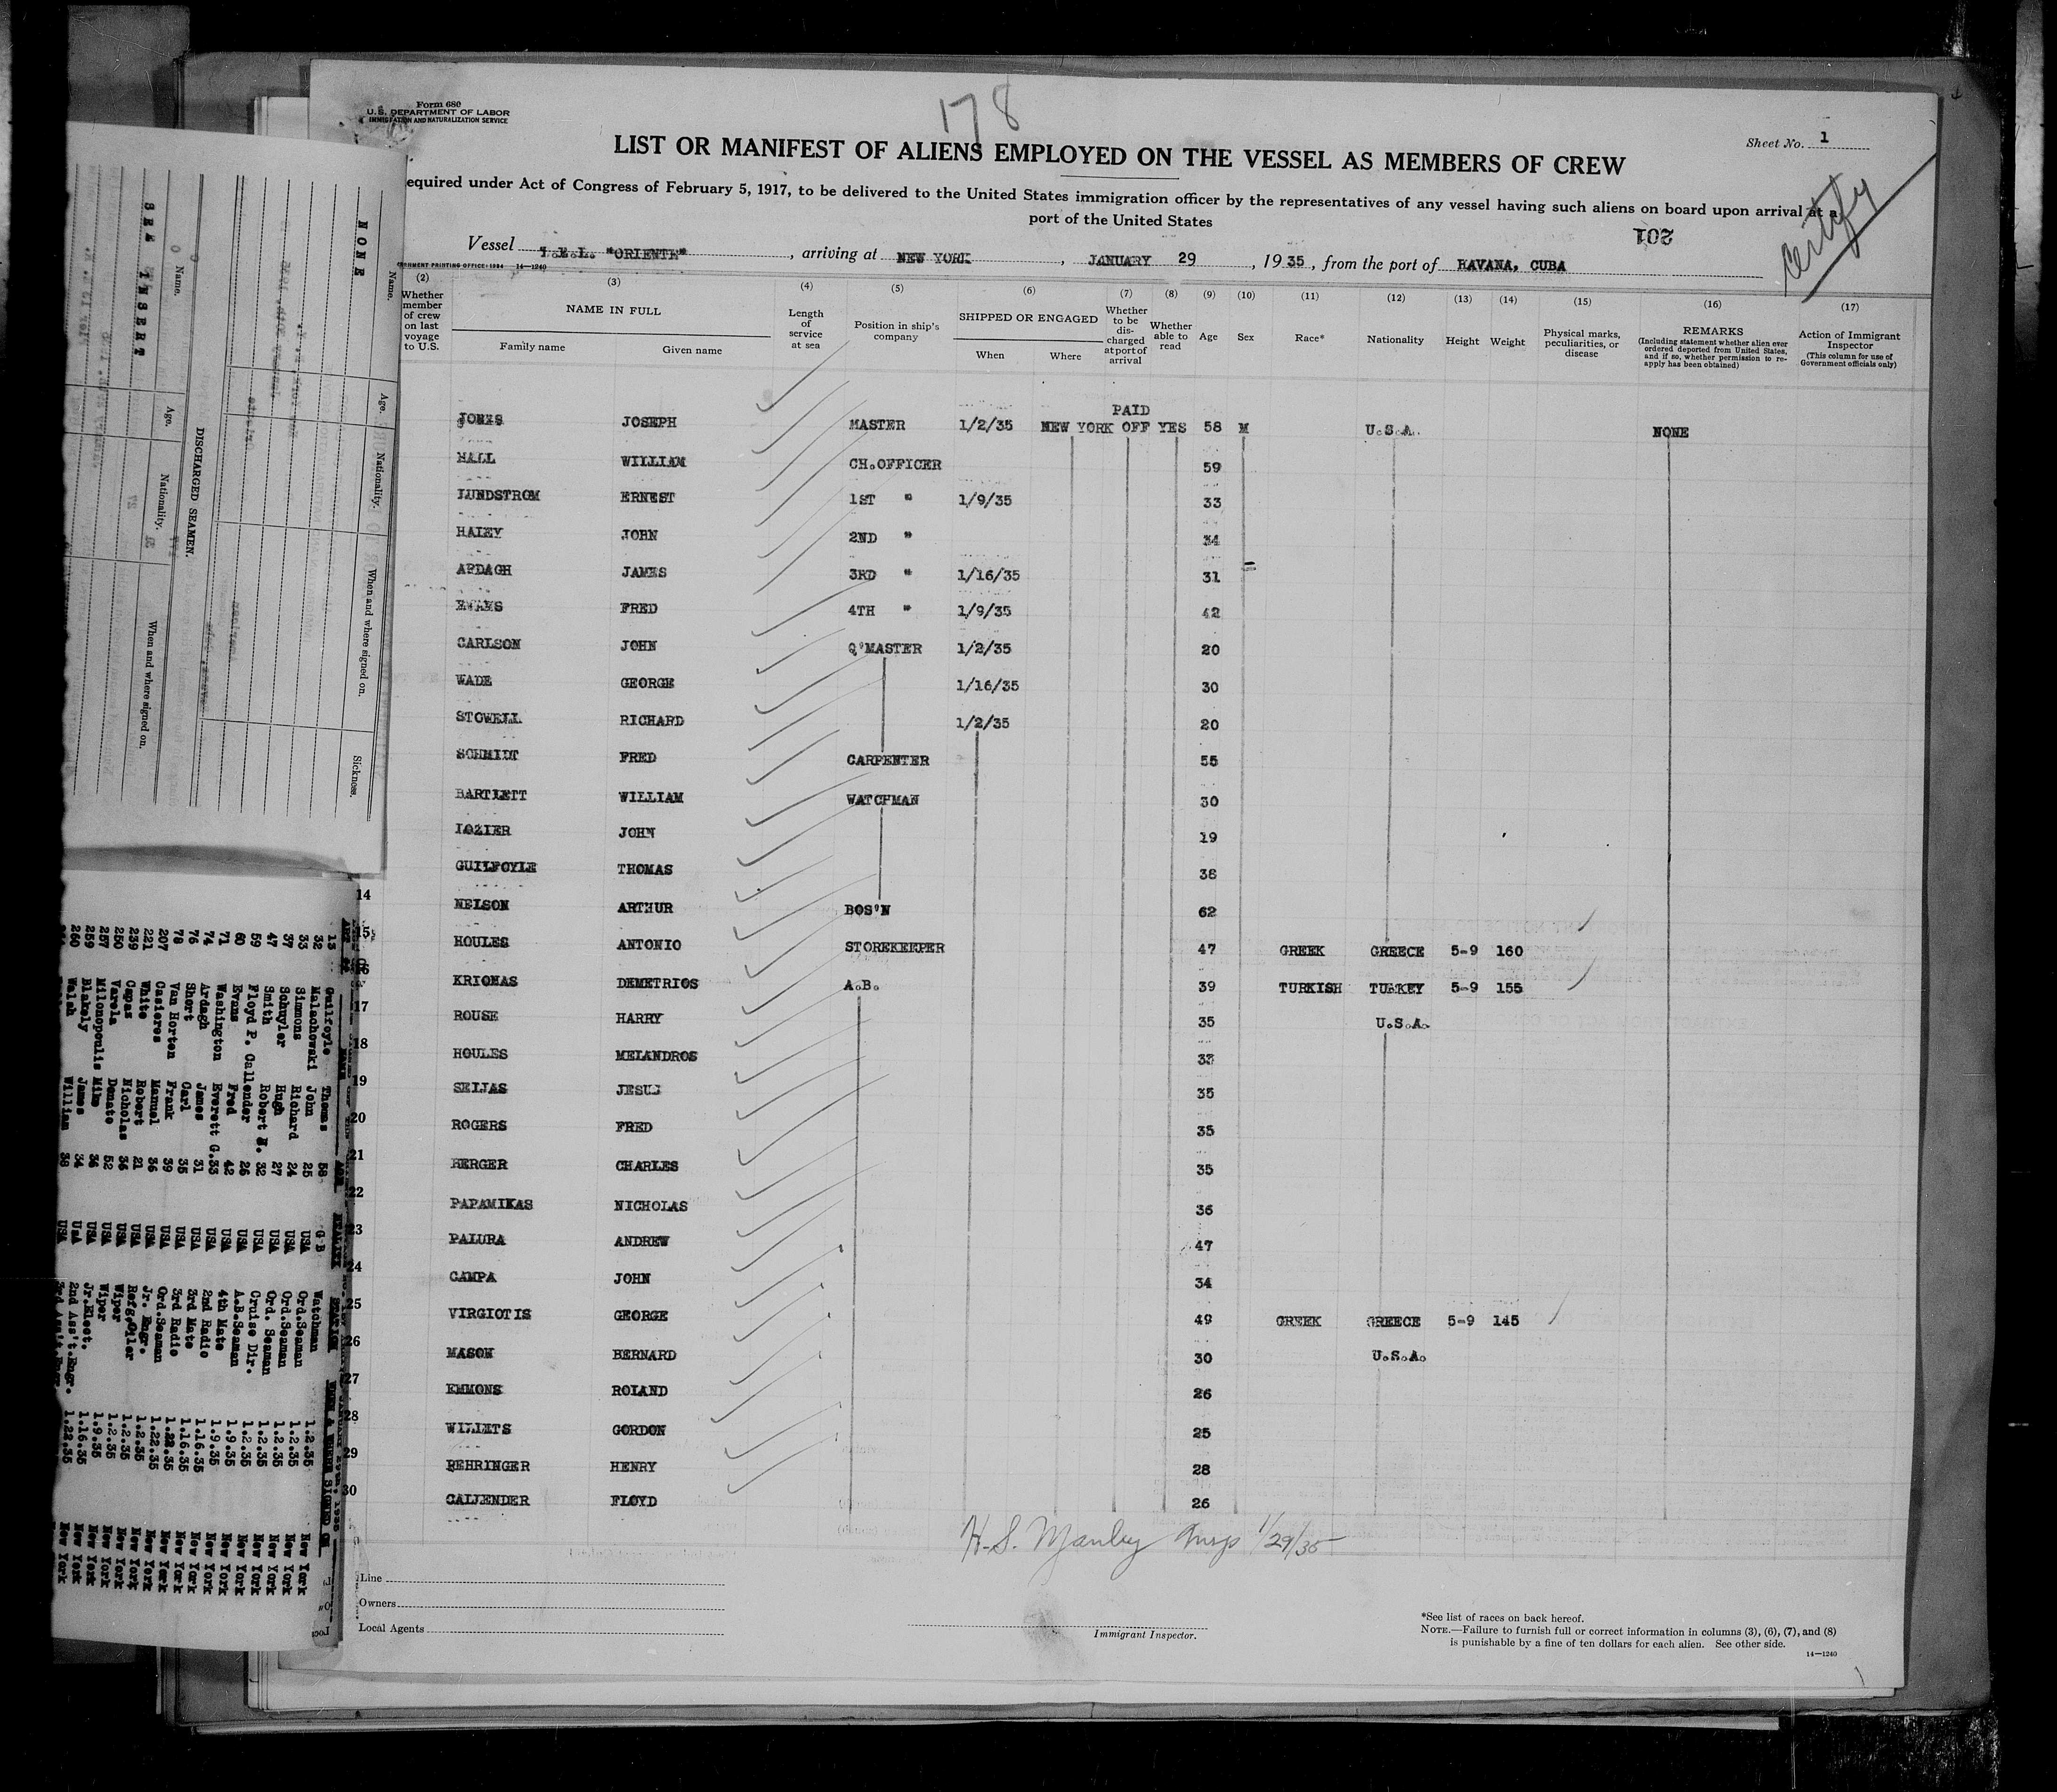 Form 680
U.S. DEPARTMENT OF LABOR
IMMIGRATION AND NATURALIZATION SERVICE
178
Sheet No. 1
LIST OR MANIFEST OF ALIENS EMPLOYED ON THE VESSEL AS MEMBERS OF CREW
equired under Act of Congress of February 5, 1917, to be delivered to the United States immigration officer by the representatives of any vessel having such aliens on board upon arrival at a
port of the United States
Certify
201
Vessel "ORIENTE", arriving at NEW YORK, JANUARY 29, 1935, from the port of HAVANA, CUBA
14—1240
(2) (3) (4) (5) (6) (7) (8) (9) (10) (11) (12) (13) (14) (15) (16) (17)
Whether member of crew on last voyage to U.S.
NAME IN FULL
Family name Given name
Length of service at sea
Position in ship's company
SHIPPED OR ENGAGED
When Where
Whether to be discharged at port of arrival
Whether able to read
Age
Sex
Race*
Nationality
Height
Weight
Physical marks, peculiarities, or disease
REMARKS
(Including statement whether alien ever ordered deported from United States, and if so, whether permission to reapply has been obtained)
Action of Immigrant Inspector
(This column for use of Government officials only)
PAID
JONES JOSEPH MASTER 1/2/35 NEW YORK OFF YES 58 M U.S.A. NONE
HALL WILLIAM CH.OFFICER 59
LUNDSTROM ERNEST 1ST " 1/9/35 33
HALEY JOHN 2ND " 34
ARDAGH JAMES 3RD " 1/16/35 31
EVANS FRED 4TH " 1/9/35 42
CARLSON JOHN Q'MASTER 1/2/35 20
WADE GEORGE 1/16/35 30
STOWELL RICHARD 1/2/35 20
SCHMIDT FRED CARPENTER 55
BARTLETT WILLIAM WATCHMAN 30
LOZIER JOHN 19
GUILFOYLE THOMAS 38
14 NELSON ARTHUR BOS'N 62
15 HOULES ANTONIO STOREKEEPER 47 GREEK GREECE 5-9 160
16 KRIONAS DEMETRIOS A.B. 39 TURKISH TURKEY 5-9 155
17 ROUSE HARRY 35 U.S.A.
18 HOULES MELANDROS 33
19 SEIJAS JESUS 35
20 ROGERS FRED 35
21 BERGER CHARLES 35
22 PAPAMIKAS NICHOLAS 36
23 PALURA ANDREW 47
24 CAMPA JOHN 34
25 VIRGIOTIS GEORGE 49 GREEK GREECE 5-9 145
26 MASON BERNARD 30 U.S.A.
27 EMMONS ROLAND 26
28 WILLETS GORDON 25
29 BEHRINGER HENRY 28
30 CALLENDER FLOYD 26
H.S. Manley Insp 1/29/35
Line
Owners
Local Agents
Immigrant Inspector.
*See list of races on back hereof.
NOTE.—Failure to furnish full or correct information in columns (3), (6), (7), and (8)
is punishable by a fine of ten dollars for each alien. See other side.
14—1240
Name. Age. Nationality. When and where signed on. Sickness.
NONE
DISCHARGED SEAMEN.
Name. Age. Nationality. When and where signed on.
SEE INSERT
13 Guilfoyle Thomas 58 G B Watchman 1.2.35 New York
32 Malachowski John 25 USA Ord.Seaman 1.2.35 New York
33 Simmons Richard 24 USA Ord.Seaman 1.2.35 New York
37 Schuyler Hugh 27 USA Ord. Seaman 1.2.35 New York
47 Smith Robert H. 32 USA Cruise Dir. 1.2.35 New York
59 Floyd P. Callender 26 USA A.B.Seaman 1.2.35 New York
60 Evans Fred 42 USA 4th Mate 1.9.35 New York
71 Washington Everett G. 33 USA 2nd Radio 1.9.35 New York
74 Ardagh James 31 USA 3rd Mate 1.16.35 New York
76 Short Carl 35 USA 3rd Radio 1.16.35 New York
78 Van Horten Frank 39 USA Ord.Seaman 1.22.35 New York
207 Casieres Manuel 36 USA Jr. Engr. 1.22.35 New York
221 White Robert 21 USA Refg.Oiler 1.2.35 New York
239 Capas Nicholas 36 USA Wiper 1.2.35 New York
250 Varela Donato 52 USA Wiper 1.2.35 New York
257 Milonopoulis Mike 36 USA Jr.Elect. 1.9.35 New York
259 Blakely James 34 USA 2nd Ass't.Engr. 1.16.35 New York
260 Walsh William 38 USA 3rd Ass't.Engr 1.22.35 New York